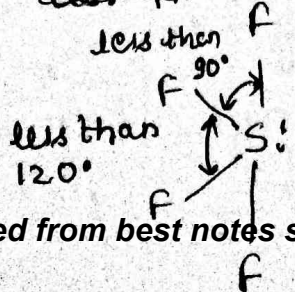 less than
90°
F
F
less than
120°
S:
F
ed from best notes s
F